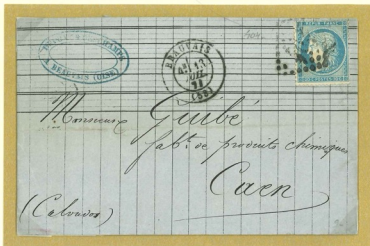 BEAUVAIS
(58)
A BEAUVAIS (OISE)
Monsieur Guibé
fabt. de produits chimiques
Caen
(Calvados)